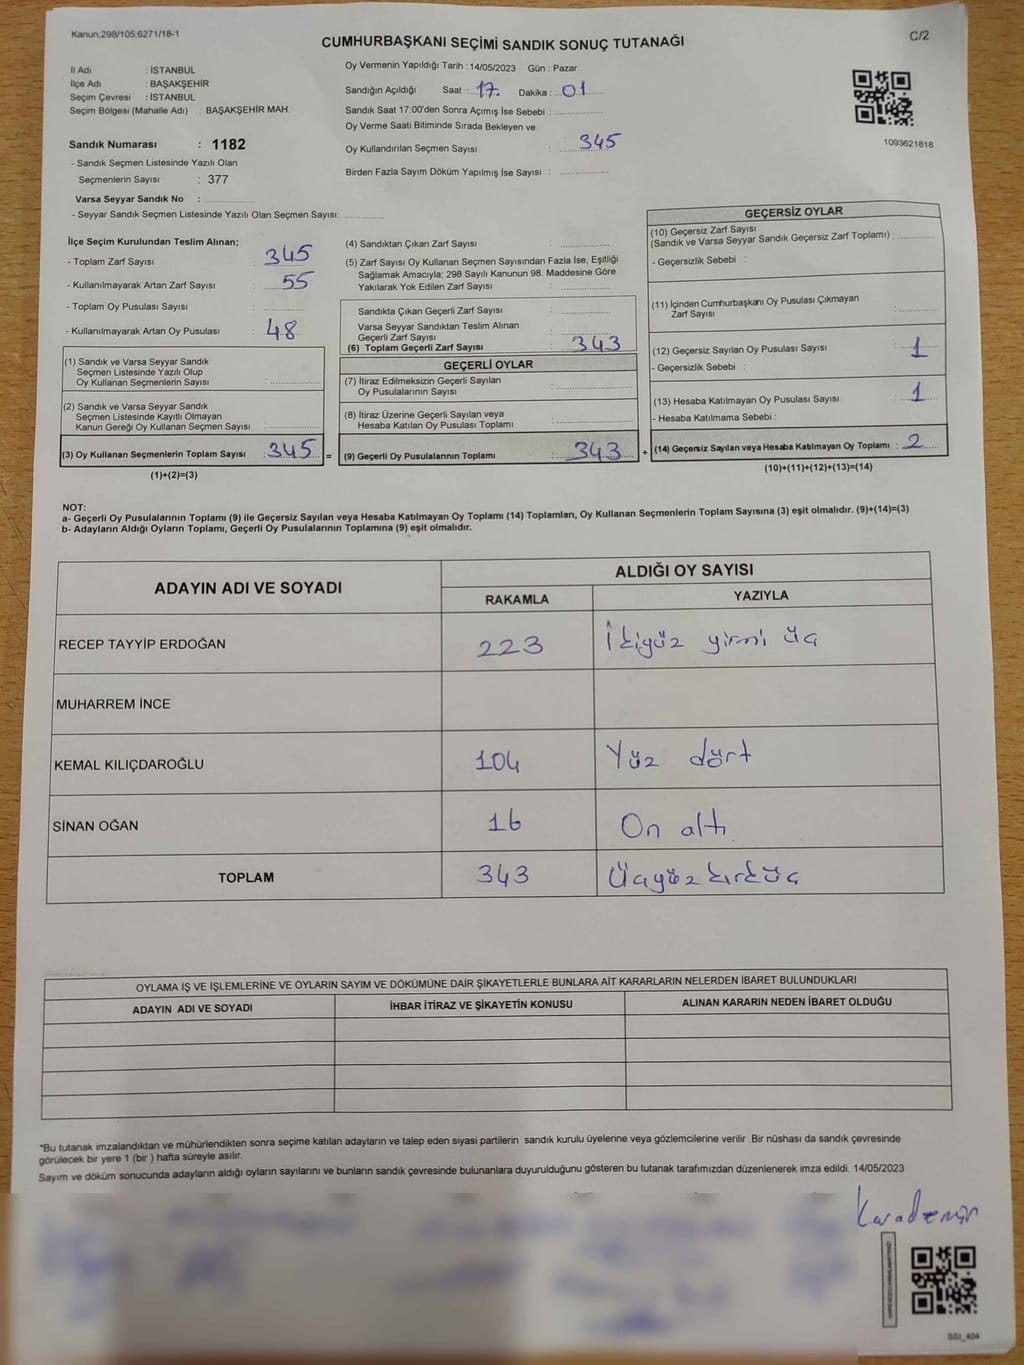 Kanun;298/105;6271/18-1
C/2
CUMHURBAŞKANI SEÇİMİ SANDIK SONUÇ TUTANAĞI
İl Adı : İSTANBUL
İlçe Adı : BAŞAKŞEHİR
Seçim Çevresi : İSTANBUL
Seçim Bölgesi (Mahalle Adı) : BAŞAKŞEHİR MAH.
Sandık Numarası : 1182
- Sandık Seçmen Listesinde Yazılı Olan
Seçmenlerin Sayısı : 377
Varsa Seyyar Sandık No : ................
- Seyyar Sandık Seçmen Listesinde Yazılı Olan Seçmen Sayısı: ............
Oy Vermenin Yapıldığı Tarih : 14/05/2023 Gün : Pazar
Sandığın Açıldığı Saat : 17. Dakika : 01
Sandık Saat 17:00'den Sonra Açımış İse Sebebi : ................
Oy Verme Saati Bitiminde Sırada Bekleyen ve
Oy Kullandırılan Seçmen Sayısı : 345
Birden Fazla Sayım Döküm Yapılmış İse Sayısı : ................
1093621818
İlçe Seçim Kurulundan Teslim Alınan;
- Toplam Zarf Sayısı : 345
- Kullanılmayarak Artan Zarf Sayısı : 55
- Toplam Oy Pusulası Sayısı : ................
- Kullanılmayarak Artan Oy Pusulası : 48
(1) Sandık ve Varsa Seyyar Sandık
Seçmen Listesinde Yazılı Olup
Oy Kullanan Seçmenlerin Sayısı : ................
(2) Sandık ve Varsa Seyyar Sandık
Seçmen Listesinde Kayıtlı Olmayan
Kanun Gereği Oy Kullanan Seçmen Sayısı : ................
(3) Oy Kullanan Seçmenlerin Toplam Sayısı : 345 =
(1)+(2)=(3)
(4) Sandıktan Çıkan Zarf Sayısı : ................
(5) Zarf Sayısı Oy Kullanan Seçmen Sayısından Fazla İse, Eşitliği
Sağlamak Amacıyla; 298 Sayılı Kanunun 98. Maddesine Göre
Yakılarak Yok Edilen Zarf Sayısı : ................
Sandıkta Çıkan Geçerli Zarf Sayısı : ................
Varsa Seyyar Sandıktan Teslim Alınan
Geçerli Zarf Sayısı : ................
(6) Toplam Geçerli Zarf Sayısı : 343
GEÇERLİ OYLAR
(7) İtiraz Edilmeksizin Geçerli Sayılan
Oy Pusulalarının Sayısı : ................
(8) İtiraz Üzerine Geçerli Sayılan veya
Hesaba Katılan Oy Pusulası Toplamı : ................
(9) Geçerli Oy Pusulalarının Toplamı : 343 +
GEÇERSİZ OYLAR
(10) Geçersiz Zarf Sayısı
(Sandık ve Varsa Seyyar Sandık Geçersiz Zarf Toplamı) : ............
- Geçersizlik Sebebi :
(11) İçinden Cumhurbaşkanı Oy Pusulası Çıkmayan
Zarf Sayısı : ............
(12) Geçersiz Sayılan Oy Pusulası Sayısı : 1
- Geçersizlik Sebebi :
(13) Hesaba Katılmayan Oy Pusulası Sayısı : 1
- Hesaba Katılmama Sebebi :
(14) Geçersiz Sayılan veya Hesaba Katılmayan Oy Toplamı : 2
(10)+(11)+(12)+(13)=(14)
NOT:
a- Geçerli Oy Pusulalarının Toplamı (9) ile Geçersiz Sayılan veya Hesaba Katılmayan Oy Toplamı (14) Toplamları, Oy Kullanan Seçmenlerin Toplam Sayısına (3) eşit olmalıdır. (9)+(14)=(3)
b- Adayların Aldığı Oyların Toplamı, Geçerli Oy Pusulalarının Toplamına (9) eşit olmalıdır.
ADAYIN ADI VE SOYADI
ALDIĞI OY SAYISI
RAKAMLA YAZIYLA
RECEP TAYYİP ERDOĞAN 223 İkiyüz yirmi üç
MUHARREM İNCE
KEMAL KILIÇDAROĞLU 104 Yüz dört
SİNAN OĞAN 16 On altı
TOPLAM 343 Üçyüz kırküç
OYLAMA İŞ VE İŞLEMLERİNE VE OYLARIN SAYIM VE DÖKÜMÜNE DAİR ŞİKAYETLERLE BUNLARA AİT KARARLARIN NELERDEN İBARET BULUNDUKLARI
ADAYIN ADI VE SOYADI İHBAR İTİRAZ VE ŞİKAYETİN KONUSU ALINAN KARARIN NEDEN İBARET OLDUĞU
*Bu tutanak imzalandıktan ve mühürlendikten sonra seçime katılan adayların ve talep eden siyasi partilerin sandık kurulu üyelerine veya gözlemcilerine verilir .Bir nüshası da sandık çevresinde
görülecek bir yere 1 (bir ) hafta süreyle asılır.
Sayım ve döküm sonucunda adayların aldığı oyların sayılarını ve bunların sandık çevresinde bulunanlara duyurulduğunu gösteren bu tutanak tarafımızdan düzenlenerek imza edildi. 14/05/2023
Karademir